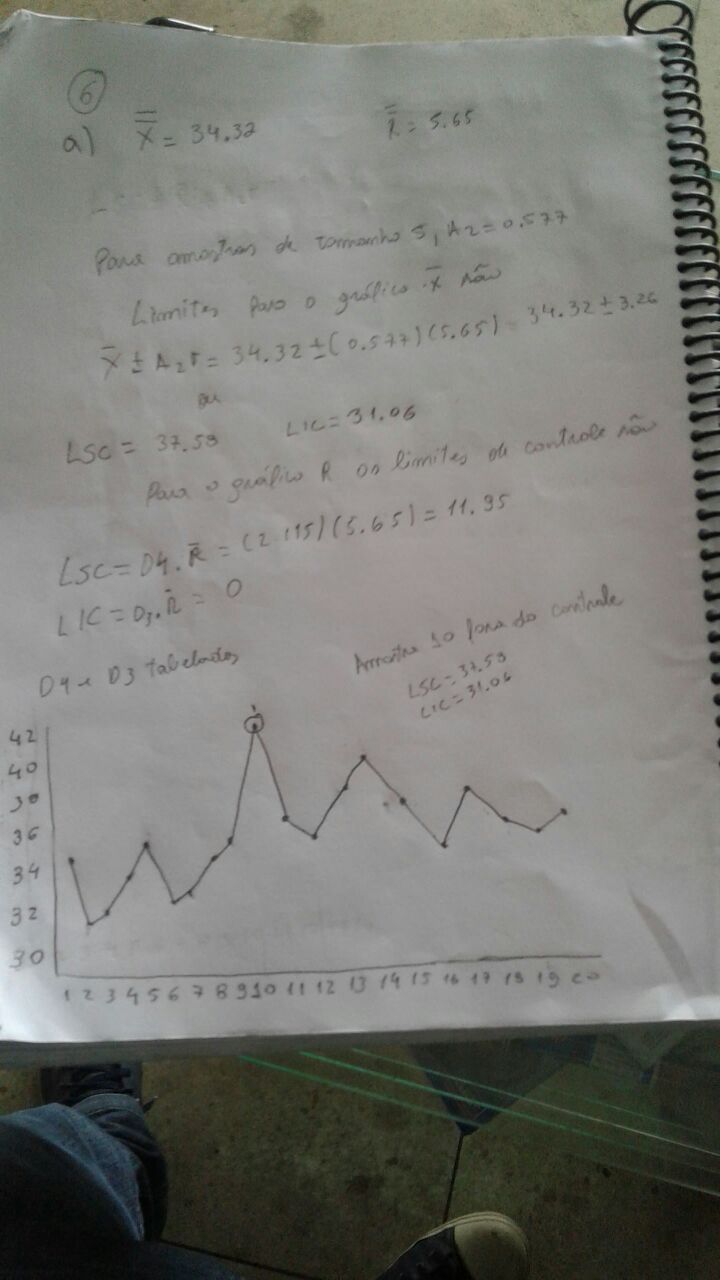 6
a) X̿ = 34.32 R̄ = 5.65
Para amostras de tamanho 5, A2 = 0.577
Limites para o gráfico x̄ são
x̄ ± A2 r = 34.32 ± (0.577)(5.65) = 34.32 ± 3.26
ou
LSC = 37.58 LIC = 31.06
Para o gráfico R os limites de controle são
LSC = D4. R̄ = (2.115)(5.65) = 11.95
LIC = D3. R̄ = 0
D4 e D3 tabelados
Amostra 10 fora do controle
LSC = 37.58
LIC = 31.06
42
40
38
36
34
32
30
1 2 3 4 5 6 7 8 9 10 11 12 13 14 15 16 17 18 19 20